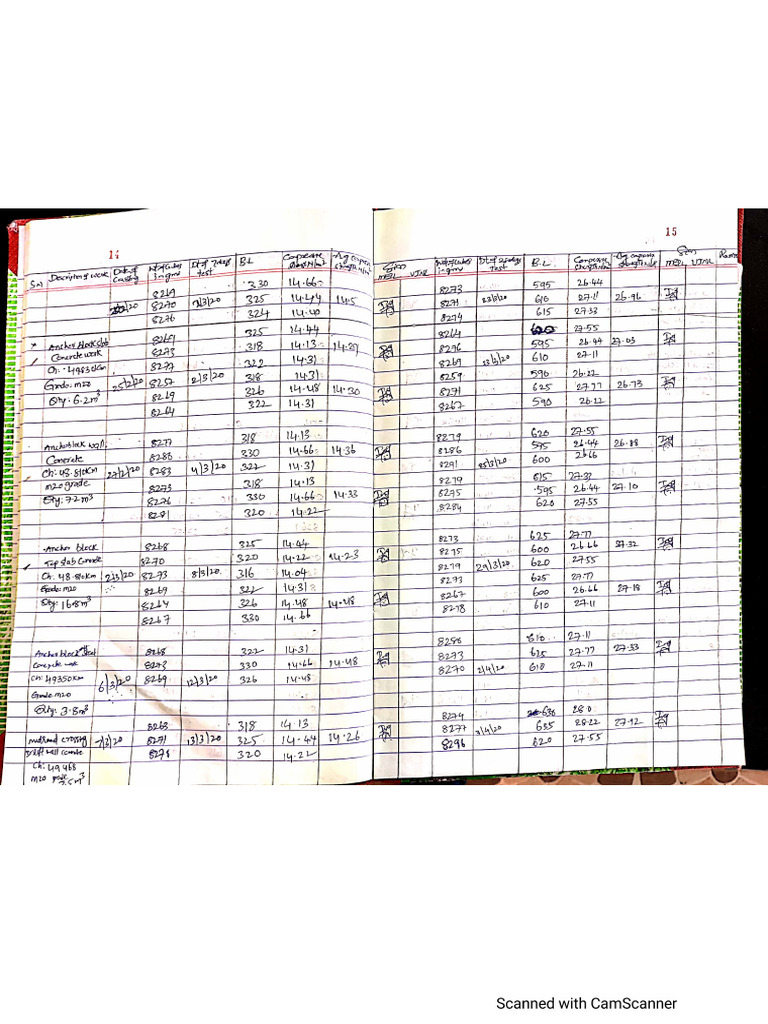 14
S.no Description of work Date of Casting Wt of Cubes in gms Dt of 7 days test B.L Compressive Strength N/mm² Avg Compre Strength N/mm² Sign MEIL
8269 330 14.66
8270 7/3/20 325 14.44 14.5
8276 324 14.40
Anchor block slab 8269 325 14.44
Concrete work 8273 318 14.13 14.29
Ch: 49830Km 8277 322 14.31
Grade: m20 25/2/20 8257 2/3/20 318 14.31
Qty: 6.2m³ 8269 326 14.48 14.30
8264 322 14.31
Anchor block wall 8277 318 14.13
Concrete 8286 330 14.66 14.36
Ch: 48.810Km 27/2/20 8283 4/3/20 322 14.31
m20 grade 8273 318 14.13
Qty: 7.2m³ 8276 330 14.66 14.33
8271 320 14.22
Anchor block 8268 325 14.44
Top slab Concrete 8270 320 14.22 14.23
Ch: 48.810Km 2/3/20 8273 8/3/20 316 14.04
Grade: m20 8269 322 14.31
Qty: 16.8m³ 8264 326 14.48 14.48
8267 330 14.66
Anchor block 8268 322 14.31
Concrete work 8273 330 14.66 14.48
Ch: 49350Km 6/3/20 8269 12/3/20 326 14.48
Grade m20
Qty: 3.8m³
8263 318 14.13
crossing 7/3/20 8271 13/3/20 325 14.44 14.26
well Concrete 8278 320 14.22
Ch: 49468
m20 grade
15
Wt of Cubes in gms Dt of 28 days test B.L Compressive Strength N/mm² Avg Compre Strength N/mm² Sign MEIL
8273 595 26.44
8271 23/3/20 610 27.11 26.96
8274 615 27.33
8264 620 27.55
8296 595 26.44 27.03
8269 23/3/20 610 27.11
8259 590 26.22
8271 625 27.77 26.73
8267 590 26.22
8279 620 27.55
8286 595 26.44 26.88
8291 25/3/20 600 26.66
8279 615 27.33
8295 595 26.44 27.10
8284 620 27.55
8273 625 27.77
8275 600 26.66 27.32
8279 29/3/20 620 27.55
8273 625 27.77
8267 600 26.66 27.18
8278 610 27.11
8258 610 27.11
8273 625 27.77 27.33
8270 2/4/20 610 27.11
8274 630 28.0
8277 3/4/20 635 28.22 27.92
8296 620 27.55
Scanned with CamScanner